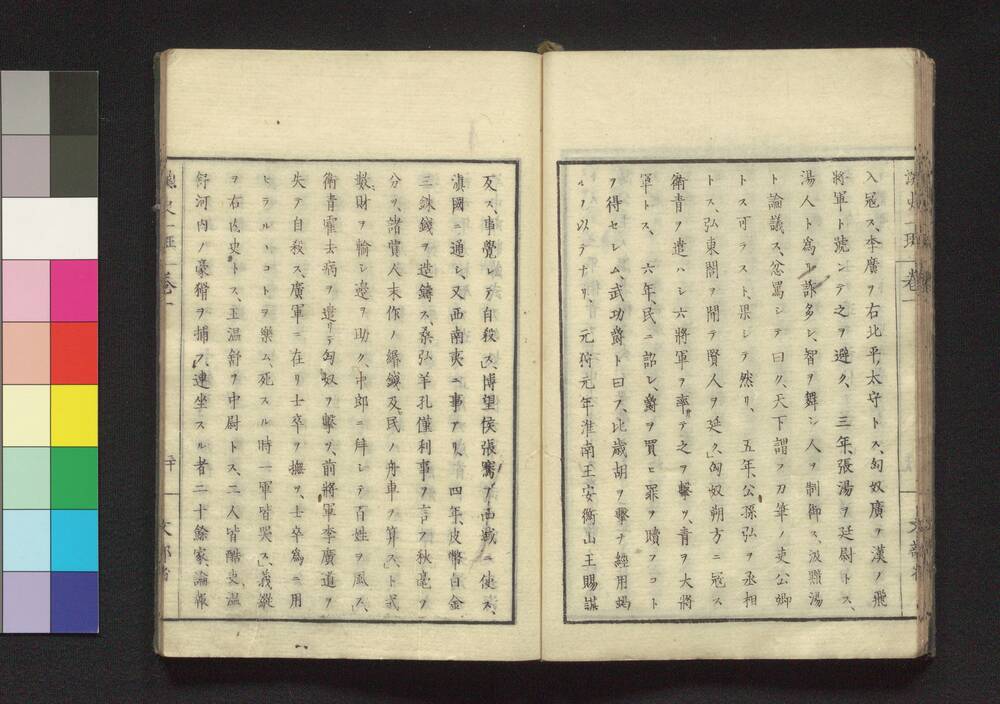 入冠ス、李廣ヲ右北平太守トス、匈奴廣ヲ漢ノ飛
將軍ト號シテ之ヲ避ク、 三年、張湯ヲ廷尉トス、
湯人ト為リ詐多シ、智ヲ舞シ人ヲ制御ス、汲黯湯
ト論議ス、忿罵シテ曰ク、天下謂フ刀筆ノ吏公卿
トス可ラスト、果シテ然リ、 五年、公孫弘ヲ丞相
トス、弘東閣ヲ開テ賢人ヲ延ク、匈奴朔方ニ冠ス
衛青ヲ遣ハシ六將軍ヲ率テ之ヲ擊ツ、青ヲ大將
軍トス、 六年、民ニ詔シ、爵ヲ買ヒ罪ヲ贖フコト
ヲ得セシム、武功爵ト曰フ、比歲胡ヲ擊テ經用竭
ルヲ以テナリ、 元狩元年淮南王安衡山王賜謀
反ス、事覺レテ自殺ス、博望侯張騫ヲ西域ニ使ス、
滇國ニ通シ、又西南夷ニ事アリ、 四年、皮幣白金
三銖錢ヲ造鑄ス桑弘羊孔僅利事ヲ言フ秋毫ヲ
分ツ、諸賈人末作ノ緡錢及民ノ舟車ヲ算ス、卜式
數財ヲ輸シ邊ヲ助ク、中郎ニ拜シテ百姓ヲ風ス、
衛青霍去病ヲ遣リテ匈奴ヲ擊ツ、前將軍李廣道ヲ
失テ自殺ス、廣軍ニ在リ士卒ヲ撫ツ、士卒為ニ用
ヒラルヽコトヲ樂ム、死スル時一軍皆哭ス、義縱
ヲ右内史トス、王温舒ヲ中尉トス、二人皆酷吏、温
舒河内ノ豪猾ヲ捕フ、連坐スル者二十餘家、論報
卷一
文部省